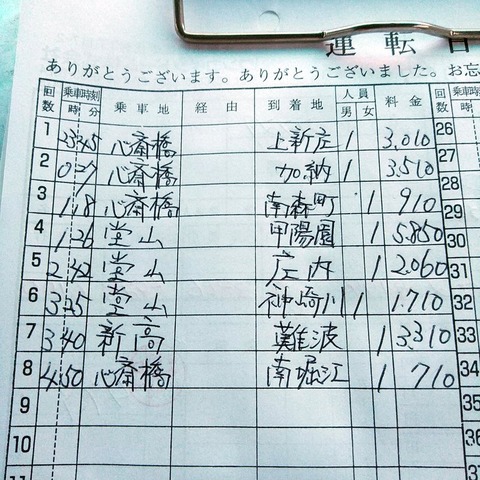 運転日
ありがとうございます。ありがとうございました。お忘
回数 乗車時刻 時 分 乗車地 経由 到着地 人員 男 女 料金 回数 乗車時
1 23 45 心斎橋 上新庄 1 3,010 26
2 0 27 心斎橋 加納 1 3,510 27
3 1 18 心斎橋 南森町 1 910 28
4 1 26 堂山 甲陽園 1 5,850 29
5 2 42 堂山 庄内 1 2,060 30
6 3 25 堂山 神崎川 1 1,710 31
7 3 40 新高 難波 1 3,310 32
8 4 50 心斎橋 南堀江 1 710 33
9 34
10 35
11 36
37